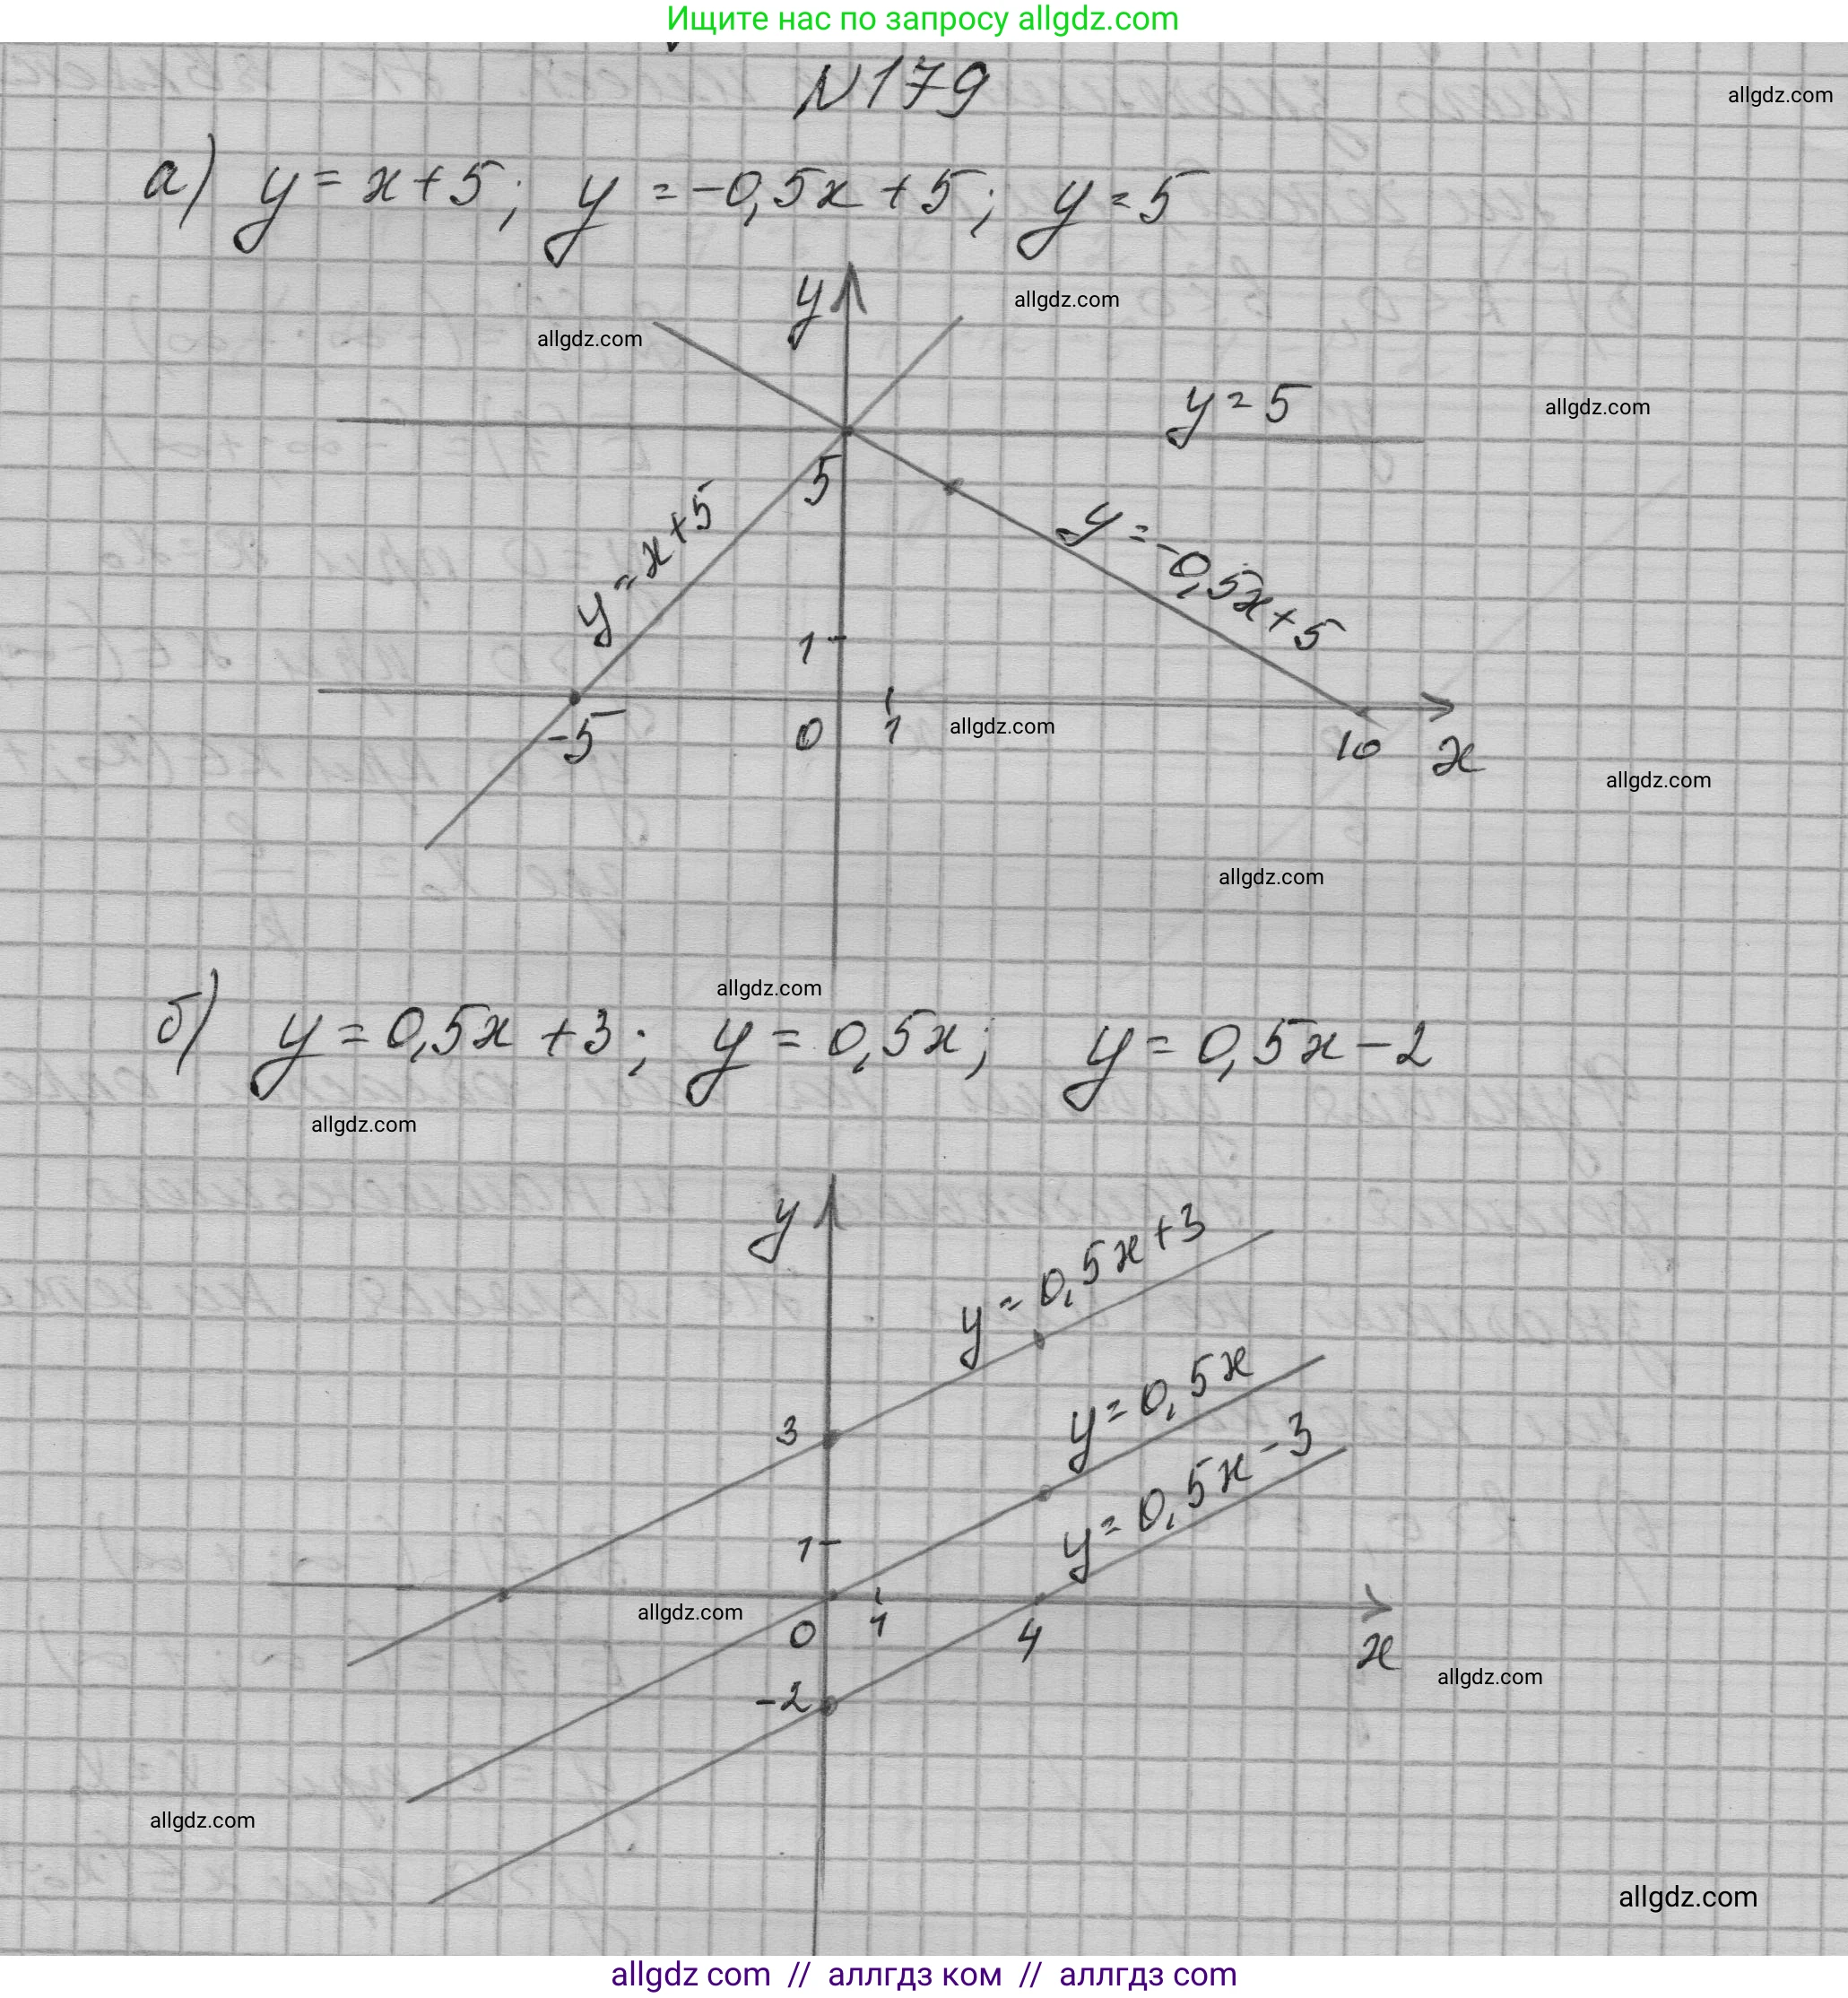 Ищите нас по запросу allgdz.com
N179
allgdz.com
а) y = x + 5; y = -0,5x + 5; y = 5
y
allgdz.com
allgdz.com
y = 5
allgdz.com
5
y = x + 5
y = -0,5x + 5
1
-5
0
1
allgdz.com
10
x
allgdz.com
allgdz.com
allgdz.com
б) y = 0,5x + 3; y = 0,5x; y = 0,5x - 2
allgdz.com
y
y = 0,5x + 3
y = 0,5x
3
y = 0,5x - 3
1
allgdz.com
0
1
4
x
allgdz.com
-2
allgdz.com
allgdz.com
allgdz com // аллгдз ком // аллгдз com